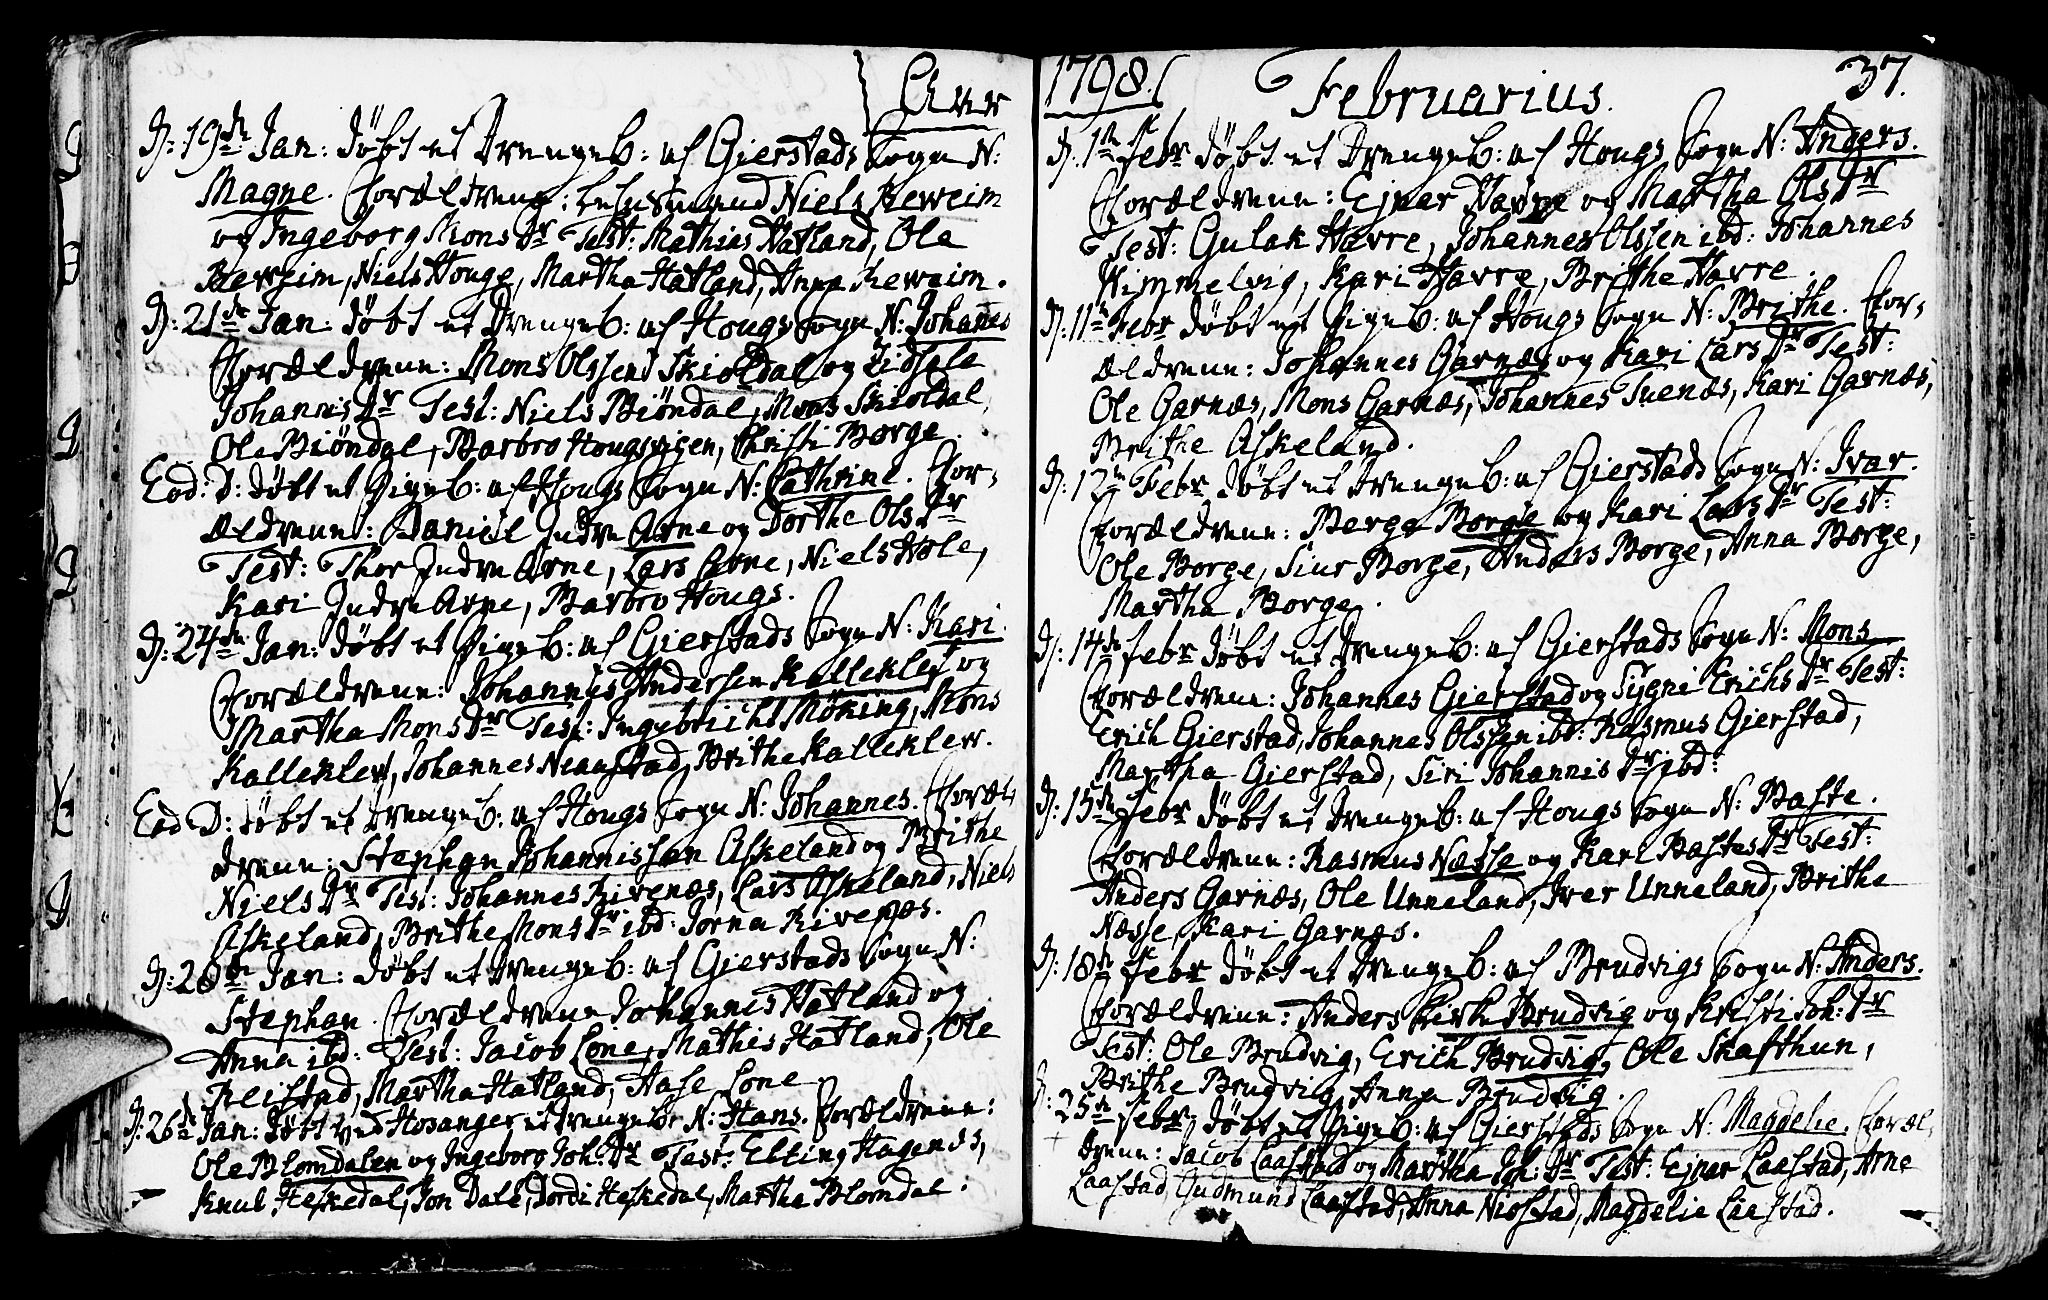 Anno
D: 19de Jan: døbt et Drengeb: af Gierstads Sogn N:
Magne. Forældrene: Niels Reweim
og Ingeborg MonsDr Test: Mathias Hatland, Ole
Reweim, Niels Houge, Martha Hatland, Anna Reweim.
D: 21de Jan: døbt et Drengeb: af Hougs Sogn N: Johannes
Forældrene: Mons Olssen Skioldal og Zidsele
JohannisDr Test: Niels Biøndal, Mons Skioldal,
Ole Biøndal, Barbro Hougsvigen, Christi Borge.
Eod: D: døbt et Pigeb: af Hougs Sogn N: Cathrine. For-
ældrene: Daniel Indre Arne og Dorthe OlsDr
Test: Thor Indre Arne, Lars Arne, Niels Hole,
Kari Indre Arne, Barbro Hougs.
D: 24de Jan: døbt et Pigeb: af Gierstads Sogn N: Kari.
Forældrene: Johannis Andersen Kalleklef og
Martha MonsDr Test: Ingebricht Møking, Mons
Kalleklef, Johannes Neaustad, Brithe Kalleklew.
Eod D: døbt et Drengeb: af Hougs Sogn N: Johannes. Foræl-
drene: Stephan Johannissen Askeland og Brithe
NielsDr Test: Johannes Rivenæs, Lars Askeland, Niels
Askeland, Brithe MonsDr ibd: Jorna Rivenæs.
D: 28de Jan: døbt et Drengeb: af Gierstads Sogn N:
Stephan. Forældrene Johannis Hatland og
Anna ibd: Test: Jacob Lone, Mathis Hatland, Ole
Reistad, Martha Hatland, Aase Lone
D: 26de Jan: døbt ved Hosanger et Drengeb: N: Hans. Forældrene:
Ole Blomdalen og Ingeborg Joh:Dr Test: Elling Hagenæs,
Knud Heskedal, Jon Dale, Jordi Heskedal, Martha Blomdal.
1798.
Februarius.
37.
D: 1te Febr døbt et Drengeb: af Hougs Sogn N: Anders.
Forældrene: Ejnar Havre og Martha OlsDr
Test: Gulak Havre, Johannes Olssen ibd: Johannes
Himmelvig, Kari Havre, Brithe Havre.
D: 11te Febr døbt et Pigeb: af Hougs Sogn N: Brithe. For-
ældrene: Johannes Garnæs og Kari LarsDr Test:
Ole Garnæs, Mons Garnæs, Johannes Tuenæs, Kari Garnæs,
Brithe Askeland.
D: 12te Febr døbt et Drengeb: af Gierstads Sogn N: Ivar.
Forældrene: Berge Borge og Kari LarsDr Test:
Ole Borge, Siur Borge, Anders Borge, Anna Borge,
Martha Borge.
D: 14de Febr døbt et Drengeb: af Gierstads Sogn N: Mons
Forældrene: Johannes Gierstad og Sygni ErichsDr Test:
Erich Gierstad, Johannes Olssen ibd: Rasmus Gierstad,
Martha Gierstad, Siri JohannisDr ibd:
D: 15de Febr døbt et Drengeb: af Hougs Sogn N: Baste.
Forældrene: Rasmus Næsse og Kari BastesDr Test:
Anders Garnæs, Ole Unneland, Iver Unneland, Brithe
Næsse, Kari Garnæs.
D: 18de Febr døbt et Drengeb: af Brudvigs Sogn N: Anders.
Forældrene: Anders Kirke Brudvig og Kristi Joh:Dr
Test: Ole Brudvig, Erich Brudvig, Ole Skafthun,
Brithe Brudvig, Anna Brudvig.
D: 25de Febr døbt et Pigeb: af Gierstads Sogn N: Magdelie. Foræl-
drene: Jacob Laastad og Martha Joh:Dr Test: Ejnar Laastad, Arne
Laastad, Gudmund Laastad, Anna Nisstad, Magdelie Laastad.